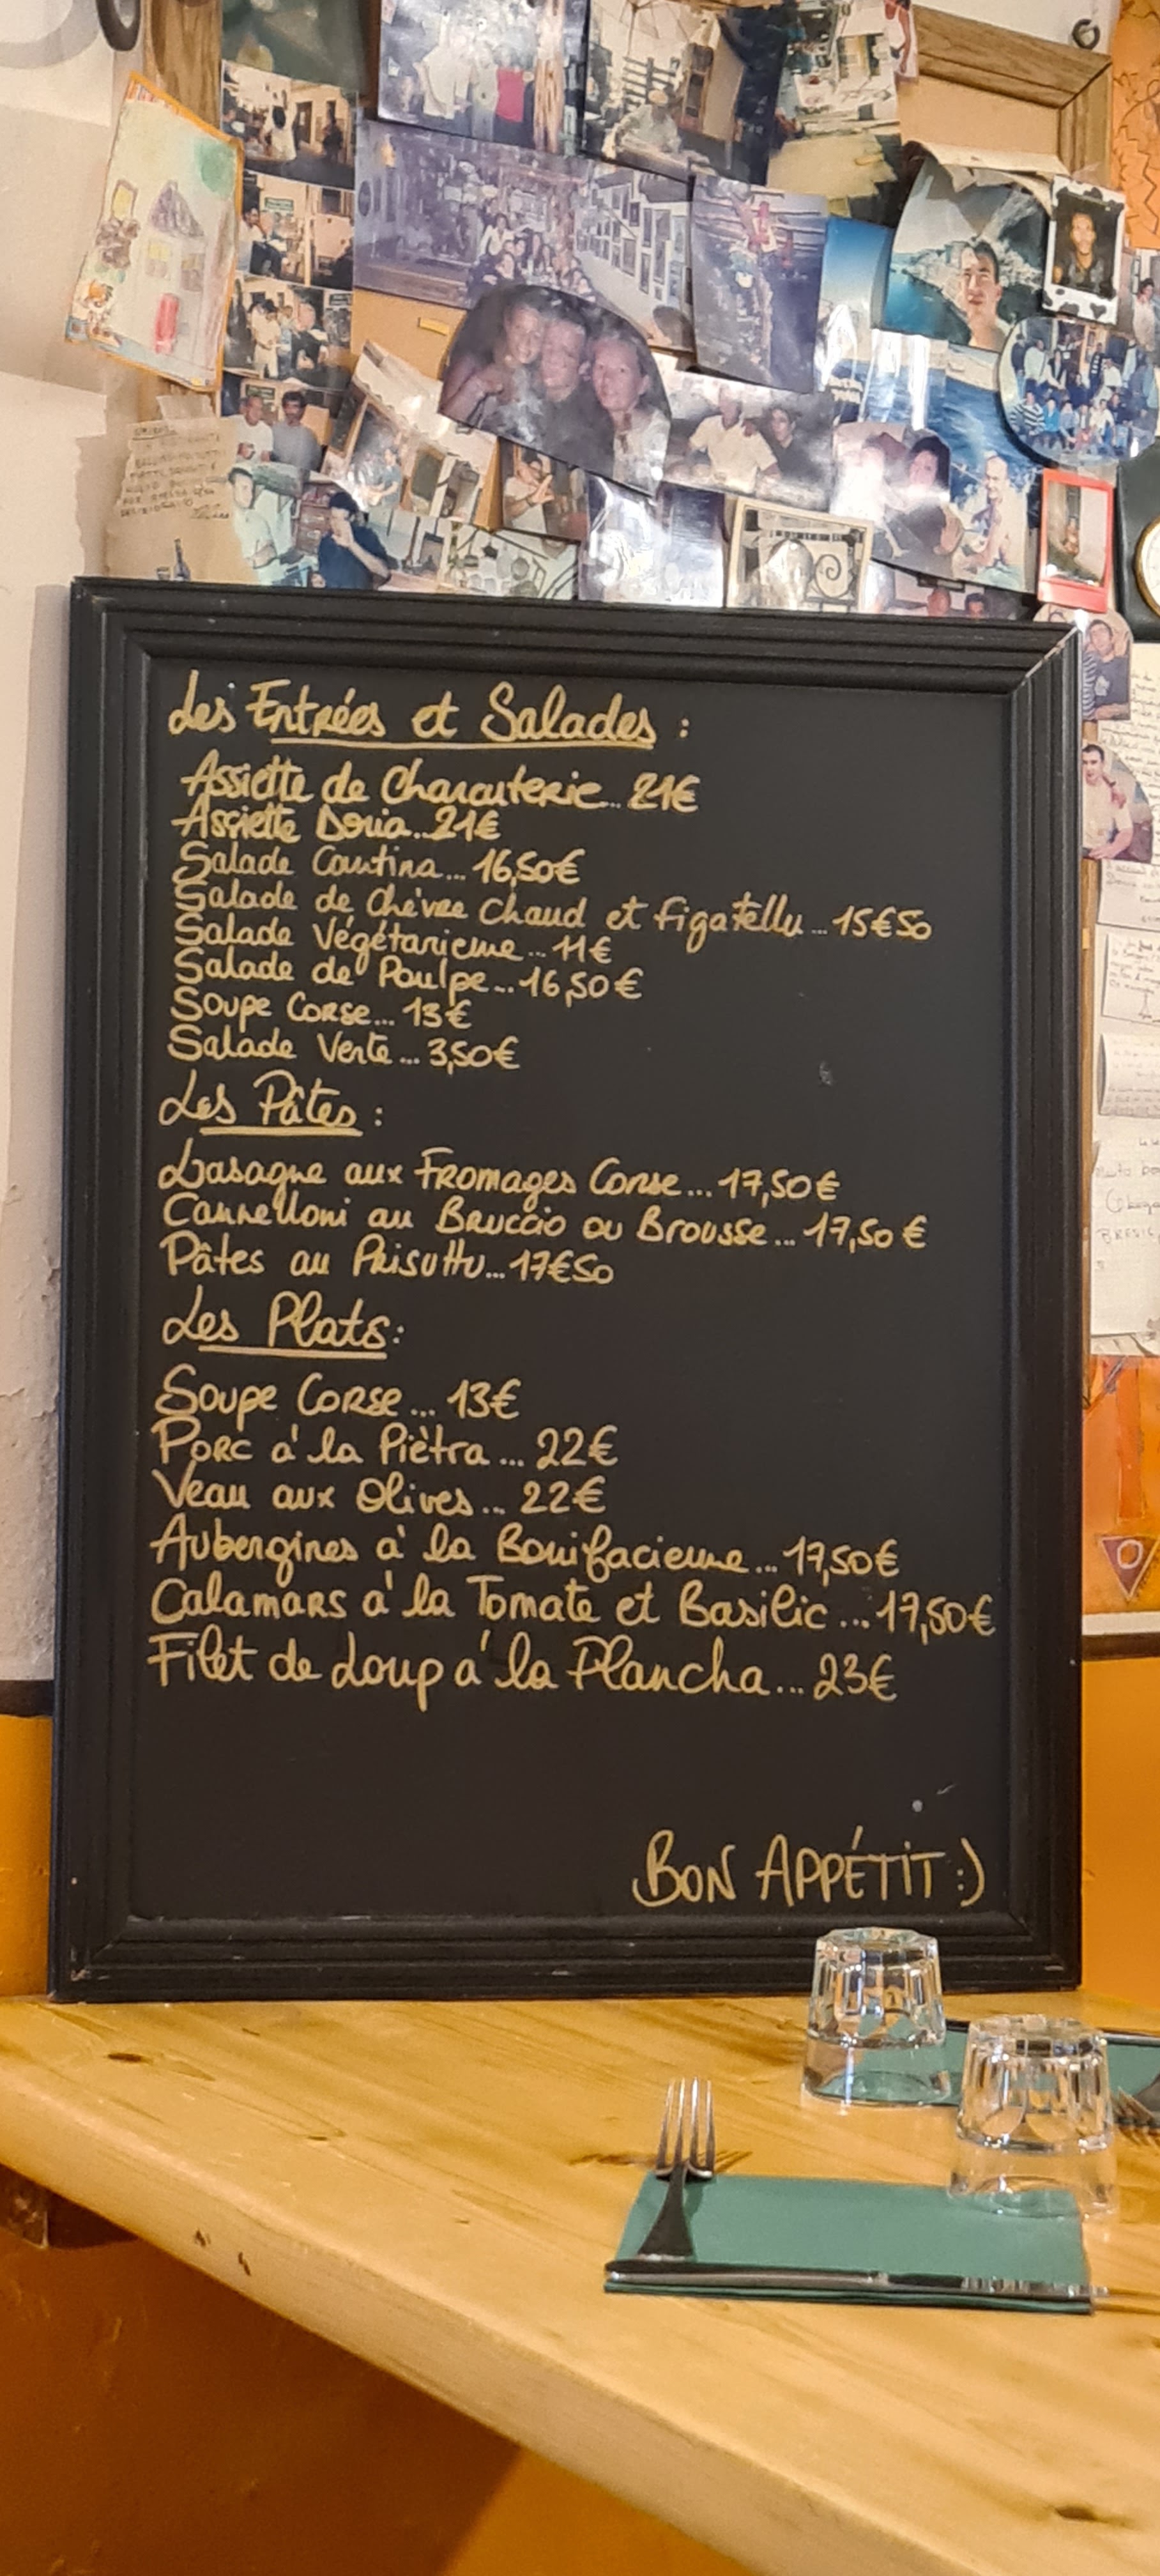 Les Entrées et Salades :
Assiette de Charcuterie.. 21€
Assiette Doria...21€
Salade Cantina... 16,50€
Salade de Chèvre Chaud et Figatellu... 15€50
Salade Végétarienne... 11€
Salade de Poulpe... 16,50€
Soupe Corse... 13€
Salade Verte... 3,50€
Les Pâtes :
Lasagne aux Fromages Corse... 17,50€
Cannelloni au Bruccio ou Brousse... 17,50€
Pâtes au Prisuttu... 17€50
Les Plats:
Soupe Corse... 13€
Porc à la Piètra... 22€
Veau aux Olives... 22€
Aubergines à la Bonifacienne... 17,50€
Calamars à la Tomate et Basilic... 17,50€
Filet de Loup à la Plancha... 23€
BON APPÉTIT :)